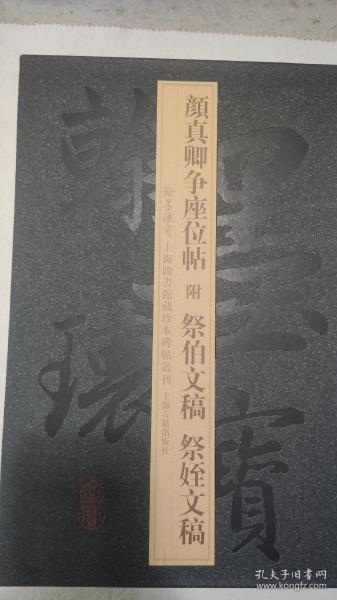 顔真卿争座位帖 附 祭伯文稿 祭姪文稿
翰墨瓌寳 上海圖書館藏珍本碑帖叢刊 上海古籍出版社
墨寳
翰瓌
孔夫子旧书网